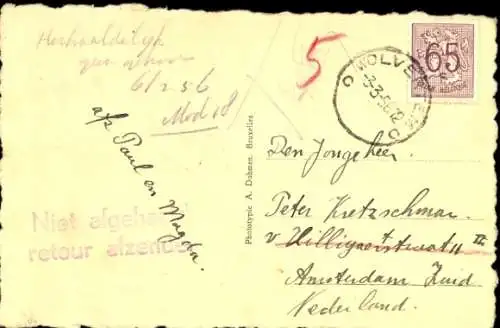 Herhaaldelijk
6/2 56
Mod 18
5
65
WOLVE
-3-3-56 12
afz Paul en Magda.
Niet afgehaald
retour afzender
Phototypie A. Dohmen, Bruxelles.
Den Jongeheer
Peter Kretzschmar
v Hilligaertstraat 11 III
Amsterdam Zuid
Nederland.